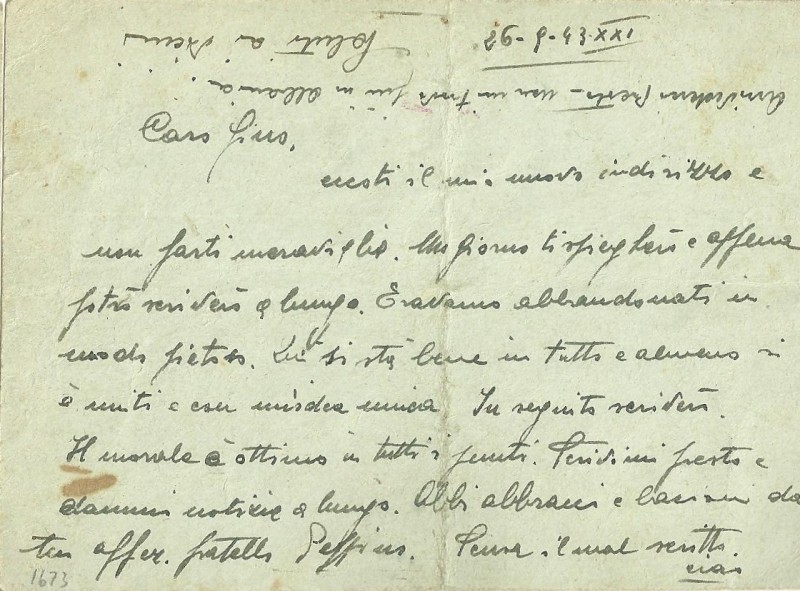 26-9-43 XXI
Caro Gino,
eccoti il mio nuovo indirizzo e
non farti maraviglie. Un giorno ti spiegherò e appena
potrò scriverò a lungo. Eravamo abbandonati in
modo pietoso. Qui si stà bene in tutto e almeno si
è uniti e con un'idea unica. In seguito scriverò.
Il morale è ottimo in tutti i punti. Scrivimi presto e
dammi notizie a lungo. Abbi abbracci e bacioni da
tuo affez. fratello Peppino. Scusa il mal scritto.
ciao
Arrivederci presto - non mi trovo più in Albania.
Saluti ai
1673